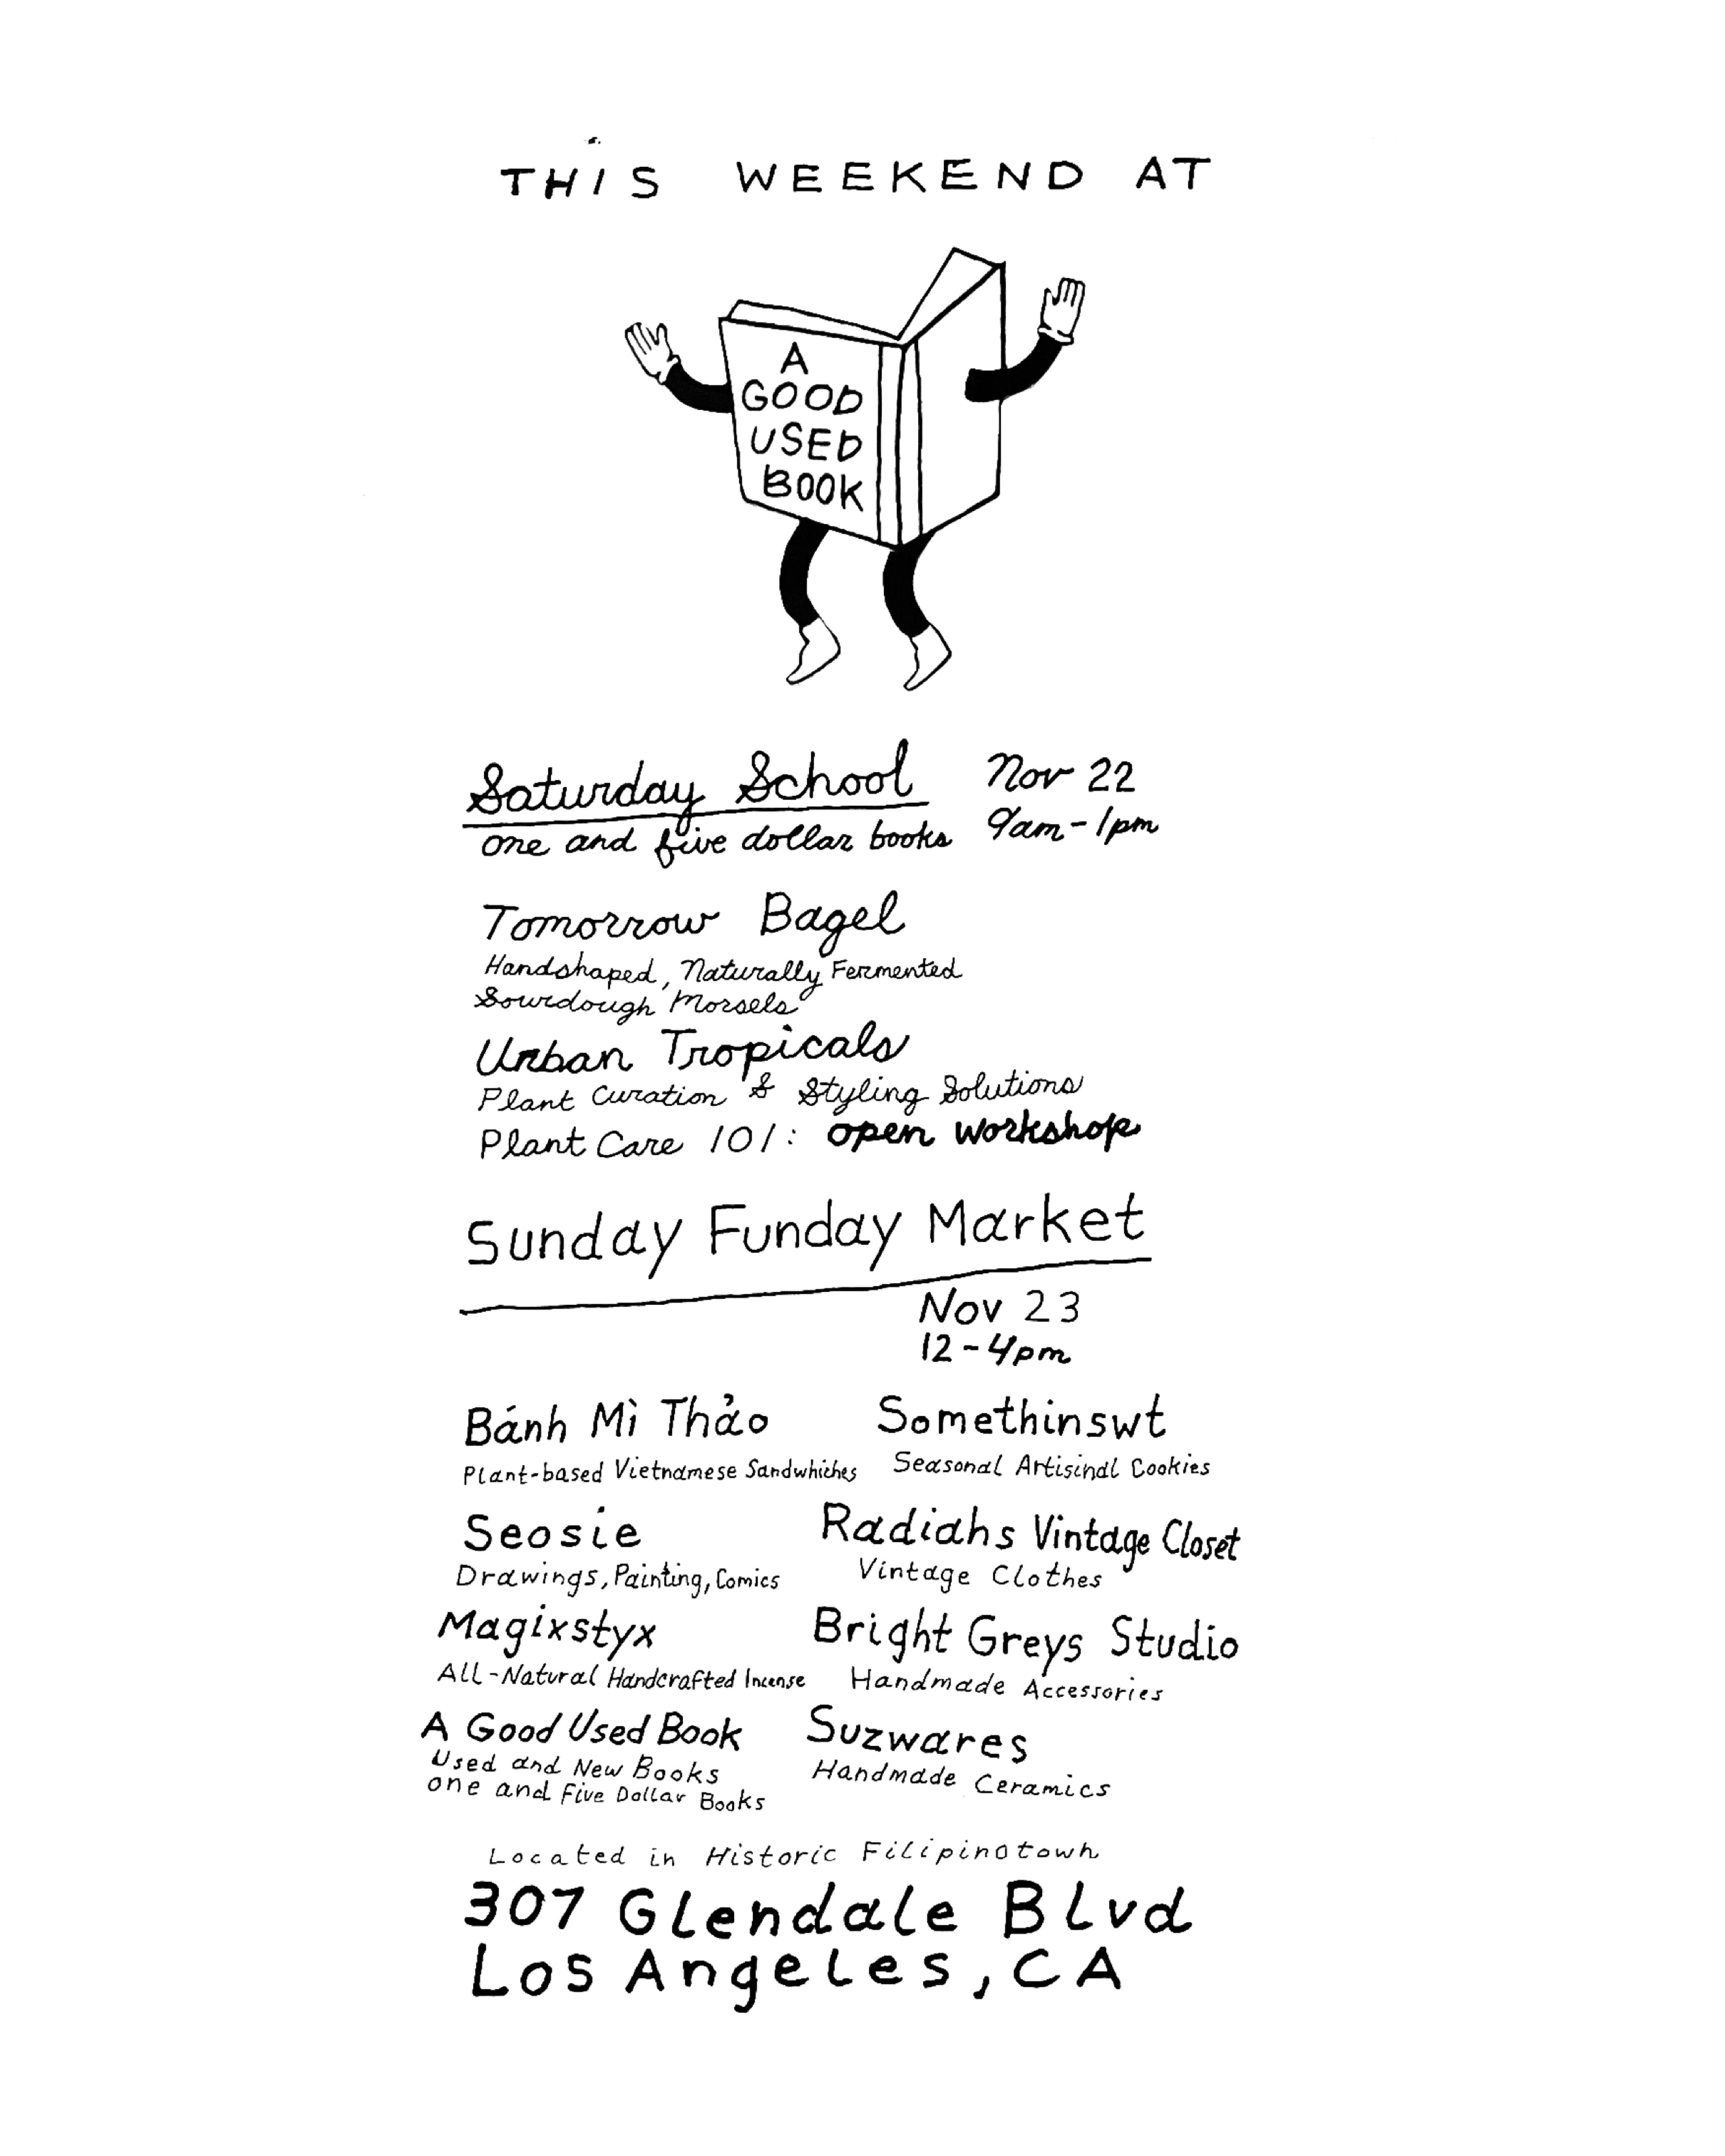 THIS WEEKEND AT
A
GOOD
USED
BOOK
Saturday School
Nov 22
one and five dollar books
9am-1pm
Tomorrow Bagel
Handshaped, Naturally Fermented
Sourdough Morsels
Urban Tropicals
Plant Curation & Styling Solutions
Plant Care 101: open workshop
Sunday Funday Market
Nov 23
12-4pm
Bánh Mì Thảo
Plant-based Vietnamese Sandwhiches
Somethinswt
Seasonal Artisinal Cookies
Seosie
Drawings, Painting, Comics
Radiahs Vintage Closet
Vintage Clothes
Magixstyx
All-Natural Handcrafted Incense
Bright Greys Studio
Handmade Accessories
A Good Used Book
Used and New Books
one and Five Dollar Books
Suzwares
Handmade Ceramics
Located in Historic Filipinotown
307 Glendale Blvd
Los Angeles, CA